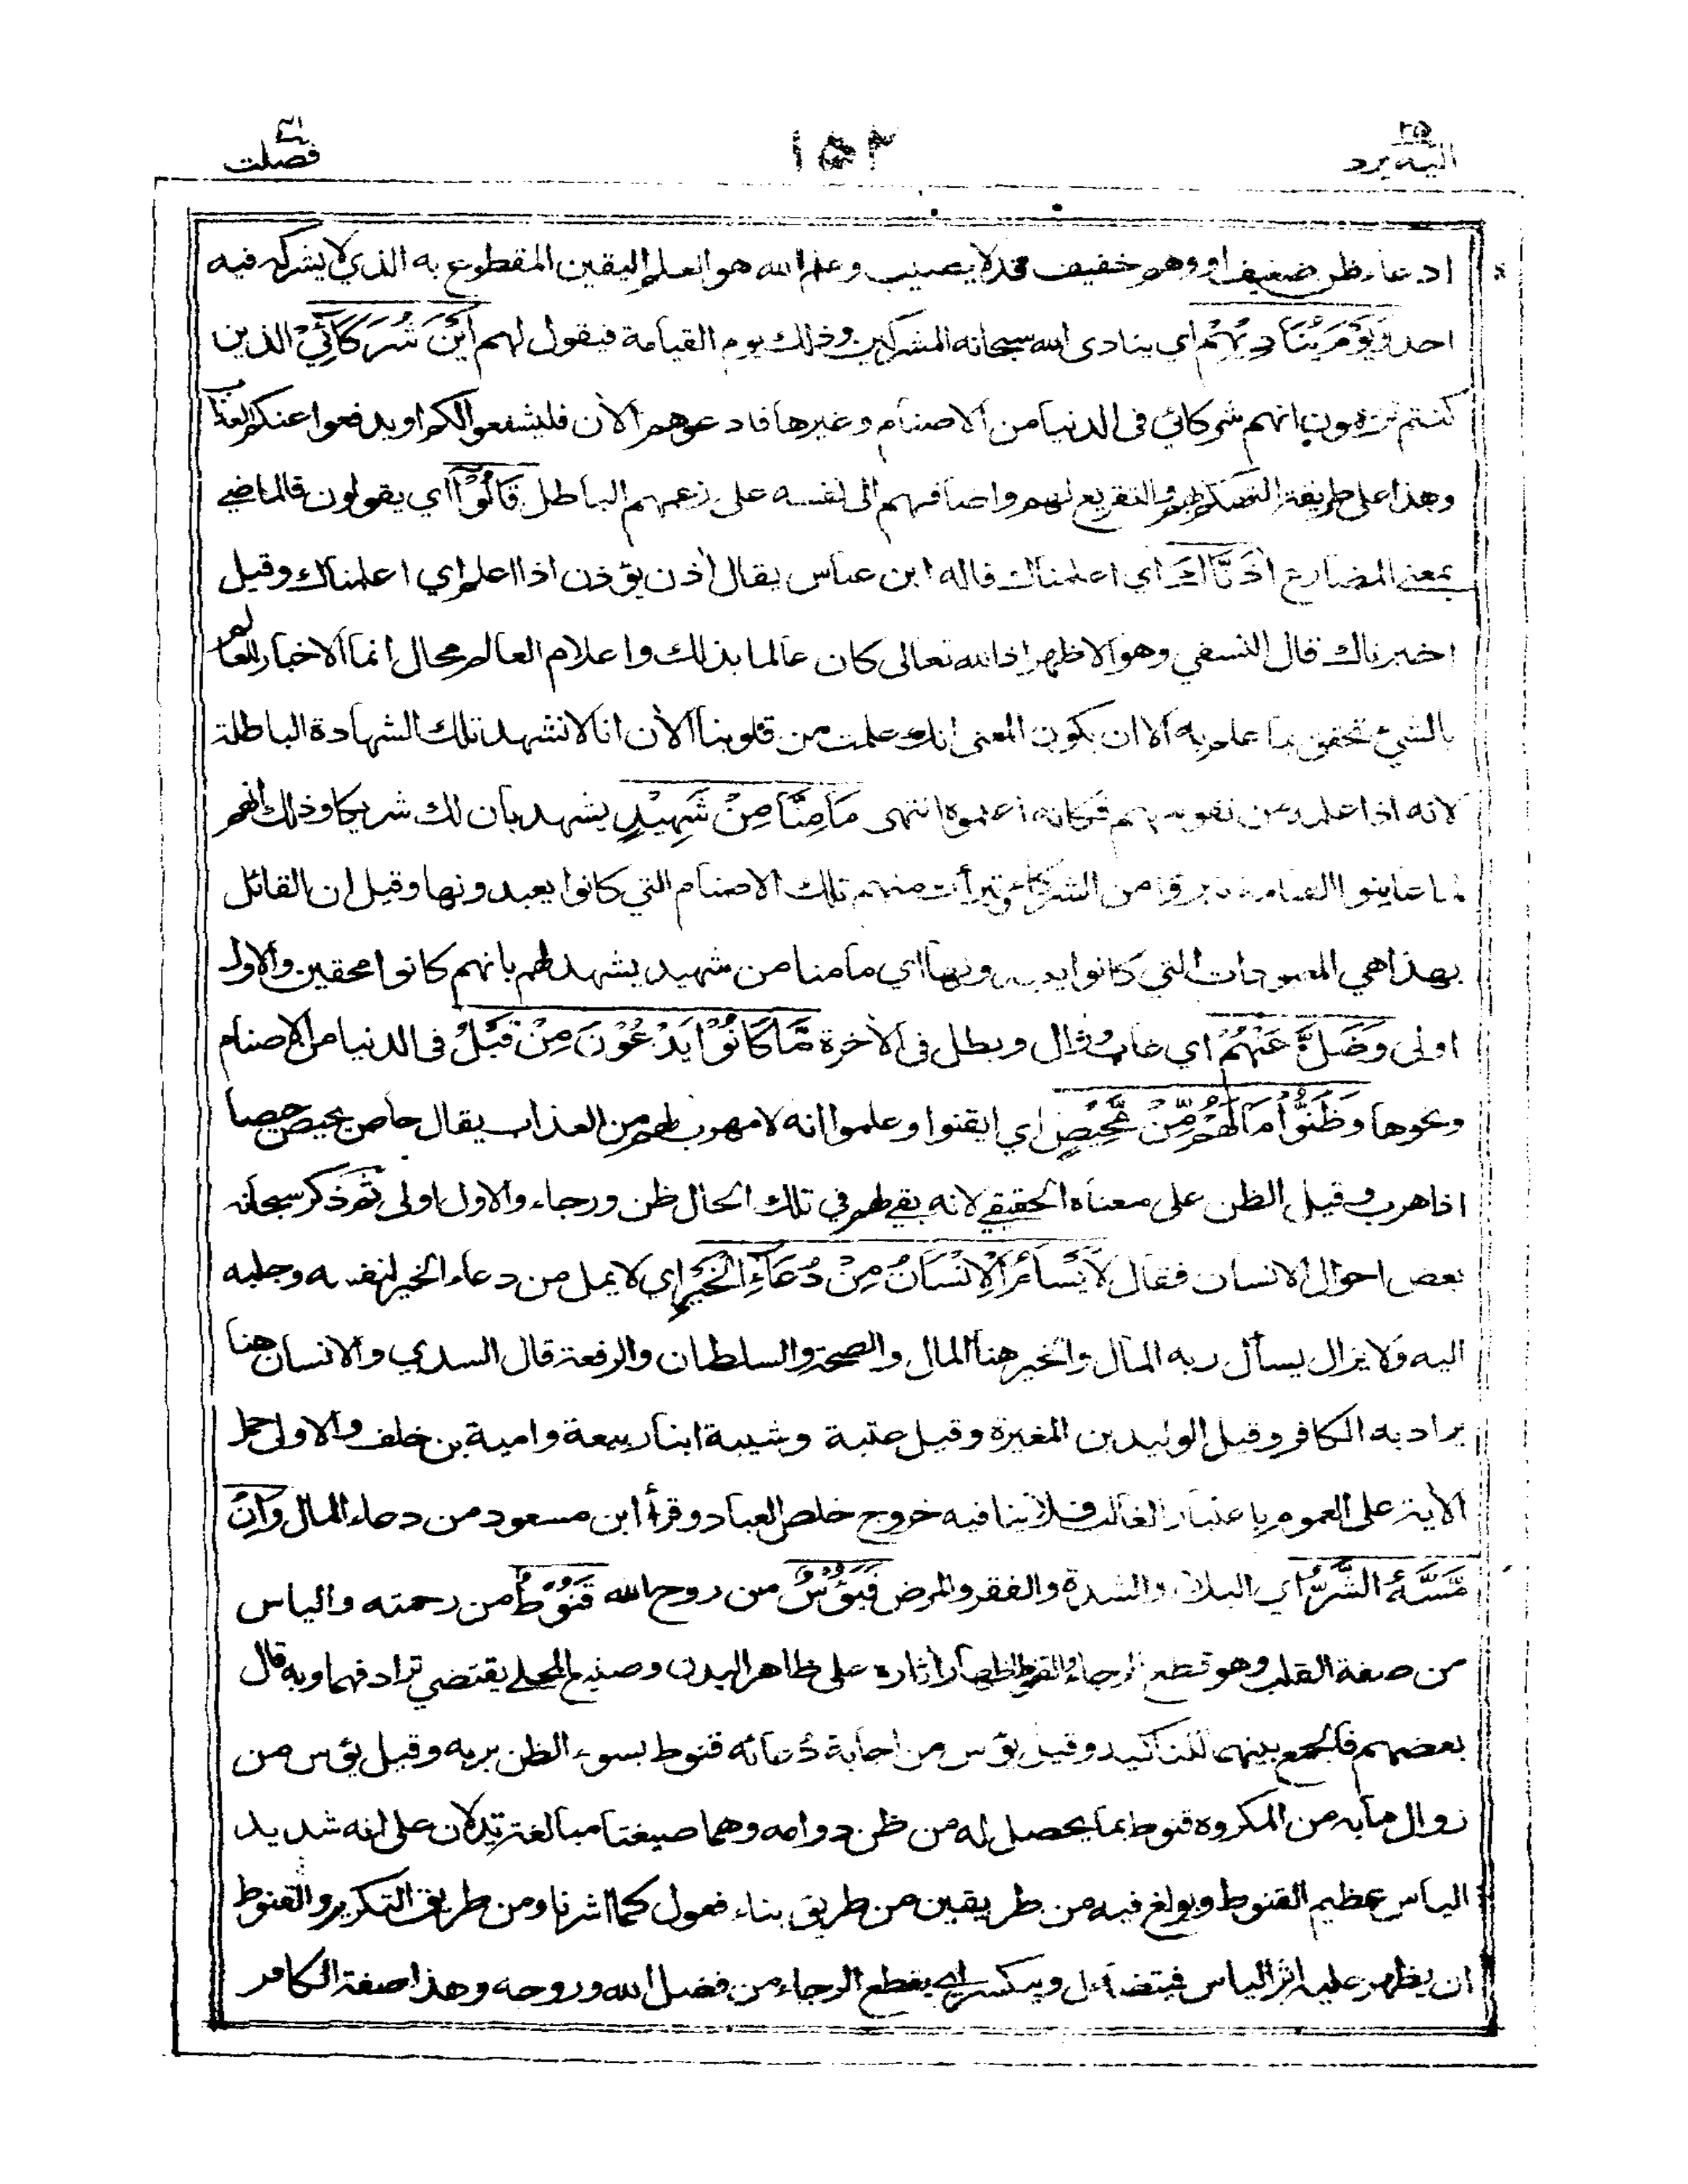 اليه يرد ٢٥
١٥٢
فصلت ٤١
ادعاء ظن ضعيف او وهم خفيف قد لا يصيب وعلم الله هو العلم اليقين المقطوع به الذي لا يشركه فيه
احد وَيَوْمَ يُنَادِيْهِمْ اي ينادى الله سبحانه المشركين وذلك يوم القيامة فيقول لهم اَيْنَ شُرَكَآئِيْ الذين
كنتم تزعمون انهم شركائي فى الدنيا من الاصنام وغيرها فادعوهم الأن فليشفعوا لكم او يدفعوا عنكم العذاب
وهذا على طريقة التهكم بهم والتقريع لهم واضافهم الى نفسه على زعمهم الباطل قَالُوْآ اي يقولون فالماضي
بمعنى المضارع اٰذَنَّاكَ اي اعلمناك قاله ابن عباس يقال أذن يؤذن اذا اعلم اي اعلمناك وقيل
اخبرناك قال النسفي وهو الاظهر اذ الله تعالى كان عالما بذلك واعلام العالم محال انما الاخبار للعالم
بالشيء تحقق بما علم به الا ان يكون المعنى انك علمت من قلوبنا الأن انا لا نشهد تلك الشهادة الباطلة
لانه اذا علمه من نفوسهم فكانه اعلموه انتهى مَا مِنَّا مِنْ شَهِيْدٍ يشهد بان لك شريكا وذلك انهم
لما عاينوا القيامة تبرؤا من الشركاء وتبرأت منهم تلك الاصنام التي كانوا يعبدونها وقيل ان القائل
بهذا هي المعبودات التي كانوا يعبدونها اي ما منا من شهيد يشهد لهم بانهم كانوا محقين والاول
اولى وَضَلَّ عَنْهُمْ اي غاب وزال وبطل فى الأخرة مَّا كَانُوْا يَدْعُوْنَ مِنْ قَبْلُ فى الدنيا من الاصنام
ونحوها وَظَنُّوْا مَا لَهُمْ مِّنْ مَّحِيْصٍ اي ايقنوا وعلموا انه لا مهرب لهم من العذاب يقال حاص يحيص حيصا
اذا هرب وقيل الظن على معناه الحقيقي لانه بقي لهم في تلك الحال ظن ورجاء والاول اولى ثم ذكر سبحانه
بعض احوال الانسان فقال لَا يَسْأَمُ الْاِنْسَانُ مِنْ دُعَآءِ الْخَيْرِ اي لا يمل من دعاء الخير لنفسه وجلبه
اليه ولا يزال يسأل ربه المال والخير هنا المال والصحة والسلطان والرفعة قال السدي والانسان هنا
يراد به الكافر وقيل الوليد بن المغيرة وقيل عتبة وشيبة ابنا ربيعة وامية بن خلف والاولى حمل
الأية على العموم باعتبار الغالب فلا ينافيه خروج خلص العباد وقرأ ابن مسعود من دعاء المال وَاِنْ
مَّسَّهُ الشَّرُّ اي البلاء والشدة والفقر والمرض فَيَؤُسٌ من روح الله قَنُوْطٌ من رحمته والياس
من صفة القلب وهو قطع الرجاء والقنوط اظهار أثاره على ظاهر البدن وصنيع المحلي يقتضي ترادفهما وبه قال
بعضهم فالجمع بينهما للتأكيد وقيل يؤس من اجابة دعائه قنوط بسوء الظن بربه وقيل يؤس من
زوال ما به من المكروه قنوط بما يحصل له من ظن دوامه وهما صيغتا مبالغة يدلان على انه شديد
الياس عظيم القنوط وبولغ فيه من طريقين من طريق بناء فعول كما اشرنا ومن طريق التكرير والقنوط
ان يظهر عليه اثر الياس فيتضاءل وينكسر اي يقطع الرجاء من فضل الله وروحه وهذا صفة الكافر